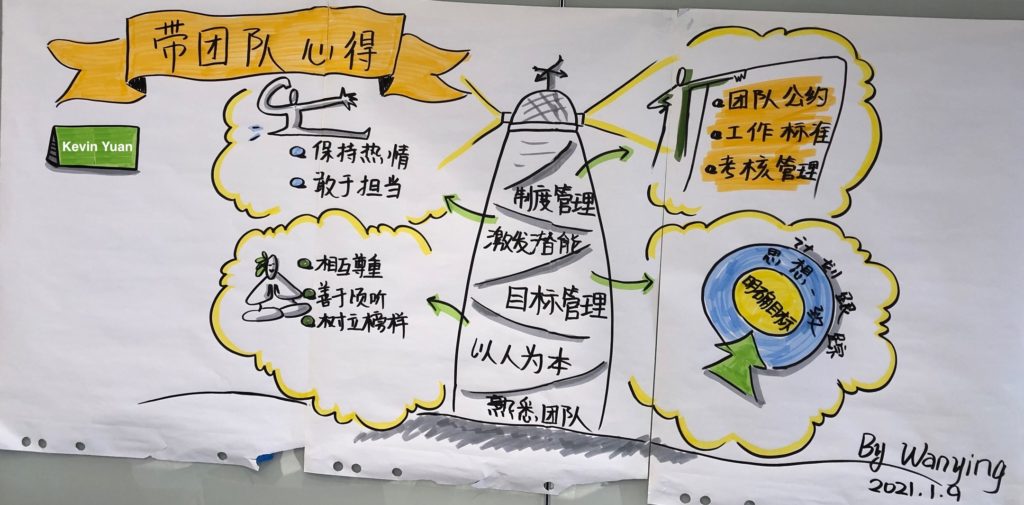 带团队心得
Kevin Yuan
保持热情
敢于担当
相互尊重
善于倾听
树立榜样
制度管理
激发潜能
目标管理
以人为本
熟悉团队
团队公约
工作标准
考核管理
计划跟踪
思想一致
明确目标
By Wanying
2021.1.9